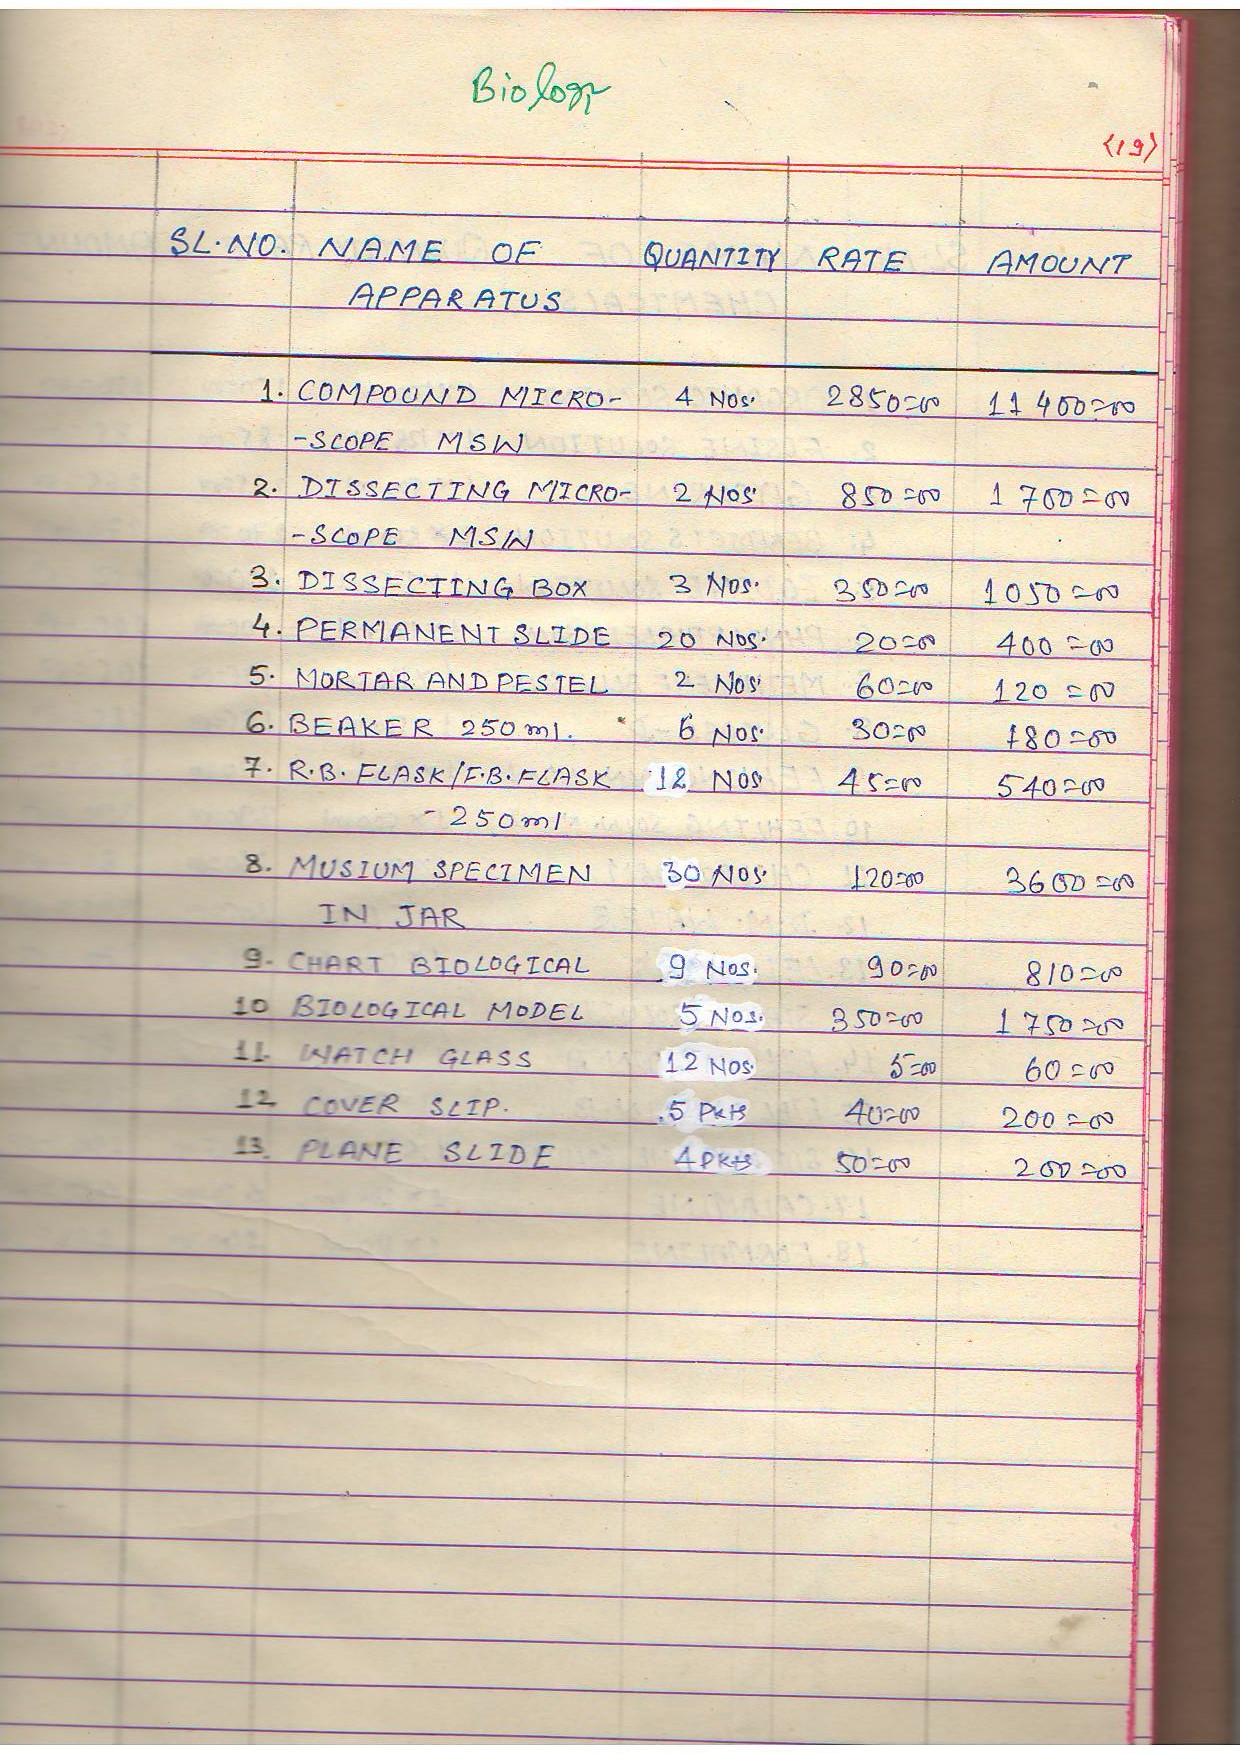 Biology
<19>
SL.NO. NAME OF QUANTITY RATE AMOUNT
APPARATUS
1. COMPOUND MICRO- 4 Nos. 2850=00 11400=00
-SCOPE MSW
2. DISSECTING MICRO- 2 Nos. 850=00 1700=00
-SCOPE MSW
3. DISSECTING BOX 3 Nos. 350=00 1050=00
4. PERMANENT SLIDE 20 Nos. 20=00 400=00
5. MORTAR AND PESTEL 2 Nos. 60=00 120=00
6. BEAKER 250ml. 6 Nos. 30=00 180=00
7. R.B. FLASK/F.B. FLASK 12 Nos 45=00 540=00
- 250ml
8. MUSIUM SPECIMEN 30 Nos. 120=00 3600=00
IN JAR
9. CHART BIOLOGICAL 9 Nos. 90=00 810=00
10 BIOLOGICAL MODEL 5 Nos. 350=00 1750=00
11. WATCH GLASS 12 Nos. 5=00 60=00
12. COVER SLIP. 5 Pkts 40=00 200=00
13. PLANE SLIDE 4 Pkts 50=00 200=00